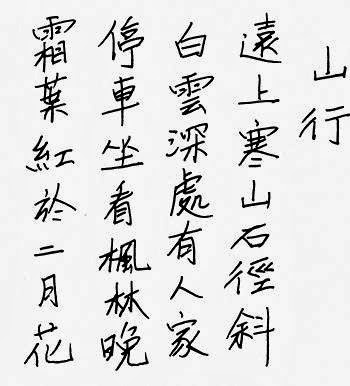 山行
遠上寒山石徑斜
白雲深處有人家
停車坐看楓林晚
霜葉紅於二月花